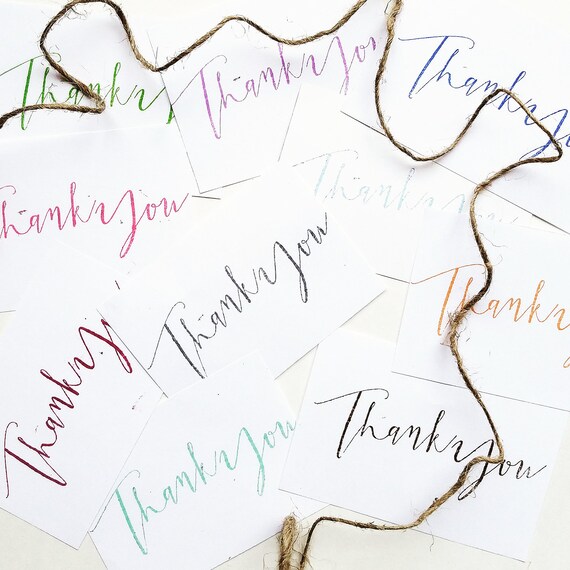 Thank You
Thank You
Thank You
Thank You
Thank You
Thank You
Thank
Thank You
Thank You
Thank You